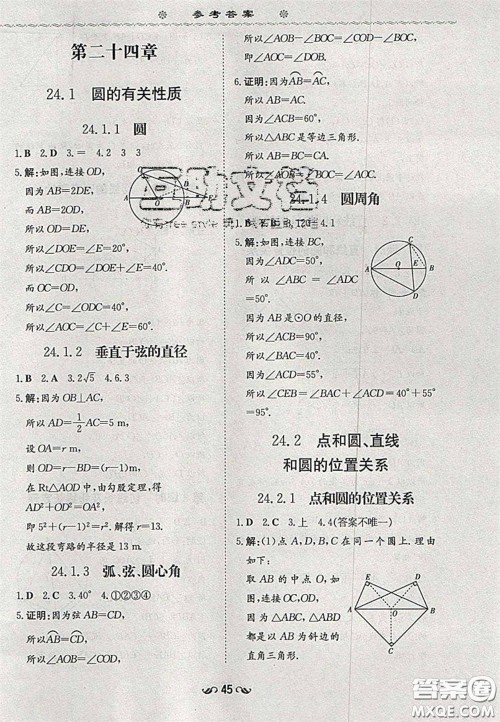 参考答案
第二十四章
24.1 圆的有关性质
24.1.1 圆
1. B 2. D 3. = 4. 2 3 3
5. 解:如图,连接OD,
因为AB=2DE,
而AB=2OD,
所以OD=DE,
所以∠DOE=∠E=20°,
所以∠CDO=∠DOE+∠E=40°,
而OC=OD,
所以∠C=∠ODC=40°,
所以∠AOC=∠C+∠E=60°.
24.1.2 垂直于弦的直径
1. B 2. A 3. 2√5 4. 6.3
5. 解:因为OB⊥AC,
所以AD=1/2AC=5 m,
设OA=r m,
则OD=(r-1)m,
在Rt△AOD中,由勾股定理,得
AD²+OD²=OA²,
即5²+(r-1)²=r²,解得r=13.
故这段弯路的半径是13 m.
24.1.3 弧、弦、圆心角
1. B 2. C 3. 40° 4. ①②③④
5. 证明:因为弦AB=CD,
所以AB=CD,
所以∠AOB=∠COD,
所以∠AOB-∠COB=∠COD-∠COB,
即∠AOC=∠BOD.
6. 证明:因为AB=AC,
所以AB=AC.
因为∠ACB=60°,
所以△ABC是等边三角形.
所以∠AOB=∠BOC=∠AOC.
24.1.4 圆周角
5. 解:如图,连接BC,
所以∠ABC=∠ADC=50°.
因为AB是⊙O的直径,
所以∠ACB=90°,
所以∠BAC=40°,
所以∠CEB=∠BAC+∠ACD=40°+55°=95°.
24.2 点和圆、直线
和圆的位置关系
24.2.1 点和圆的位置关系
1. B 2. C 3. 上 4. 4(答案不唯一)
5. 解:(1)点A,B,C,D,E在同一个圆上.如图,
取AB的中点O,
连接OC,OD,OE,
因为△ABC,
△ABD,△ABE
都是以AB为斜边的
直角三角形.
45
答案圈
MXQE.COM